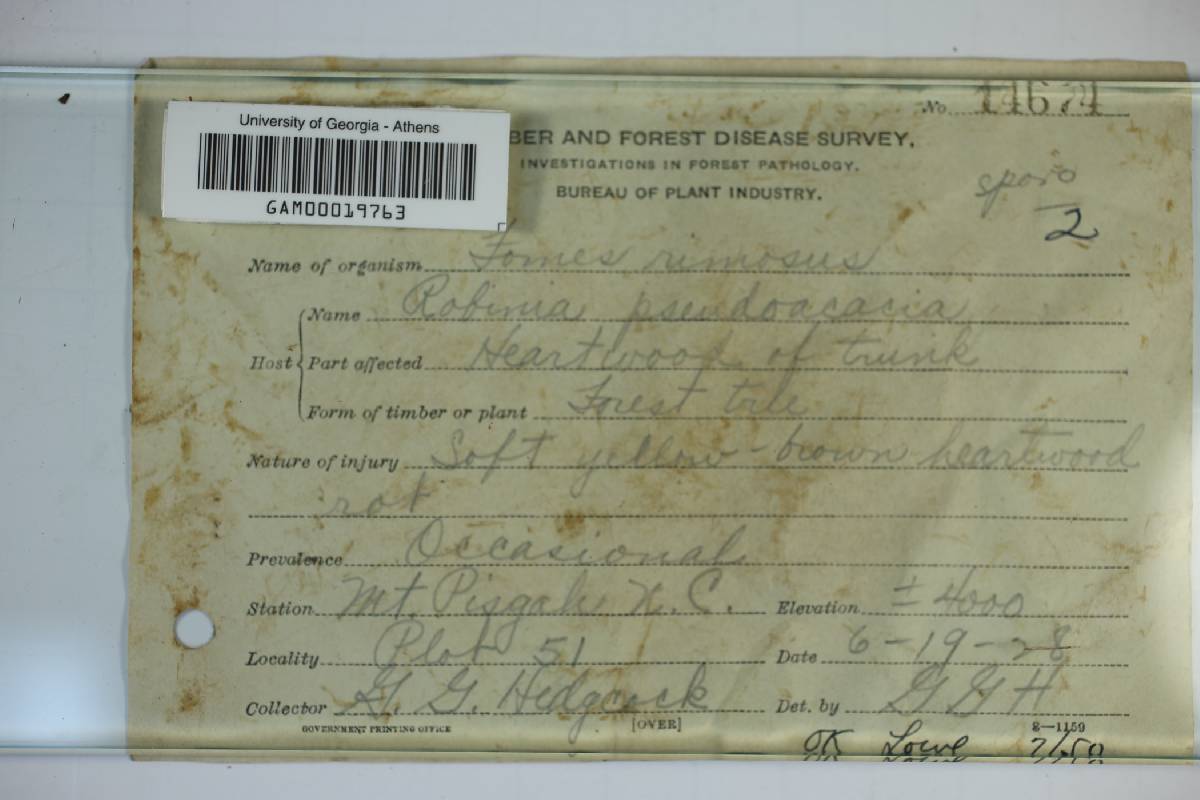 No. 44674
University of Georgia - Athens
GAM00019763
BER AND FOREST DISEASE SURVEY,
INVESTIGATIONS IN FOREST PATHOLOGY,
BUREAU OF PLANT INDUSTRY.
spore
2
Name of organism Fomes rimosus
Host { Name Robinia pseudoacacia
Part affected Heartwood of trunk
Form of timber or plant Forest tree
Nature of injury Soft yellow-brown heartwood
rot
Prevalence Occasional
Station Mt. Pisgah N. C. Elevation ± 4000
Locality Plot 51 Date 6-19-28
Collector G. G. Hedgcock Det. by G G H
GOVERNMENT PRINTING OFFICE [OVER] 8—1159
OK Lowe 7/50